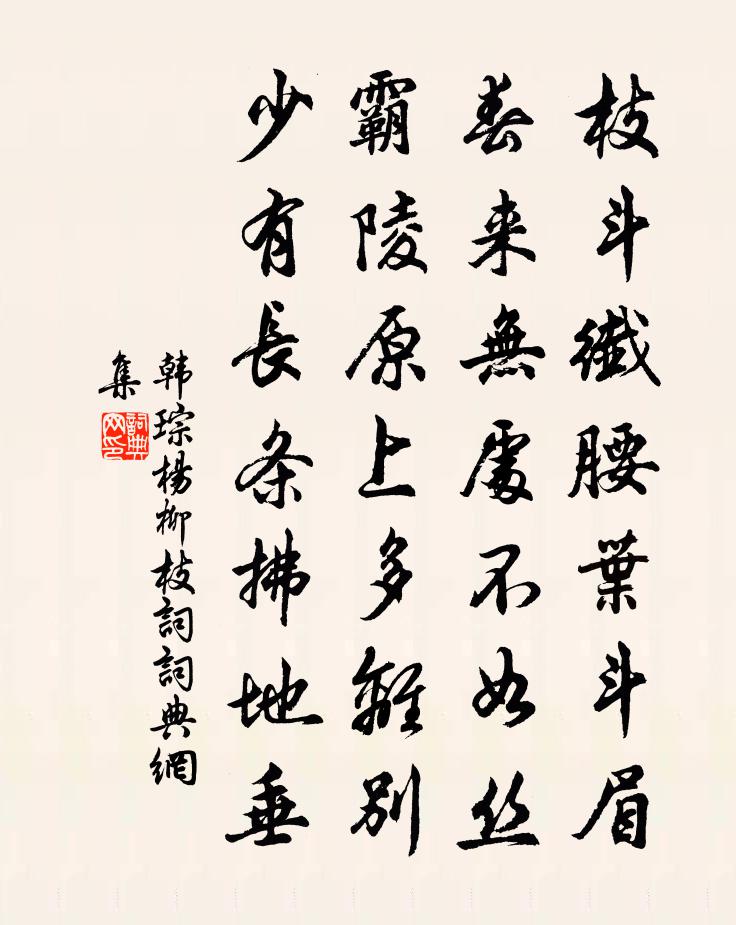 枝斗纖腰葉斗眉
春来無處不如丝
霸陵原上多離別
少有長条拂地垂
韩琮楊柳枝詞詞典網
集
詞典
网印